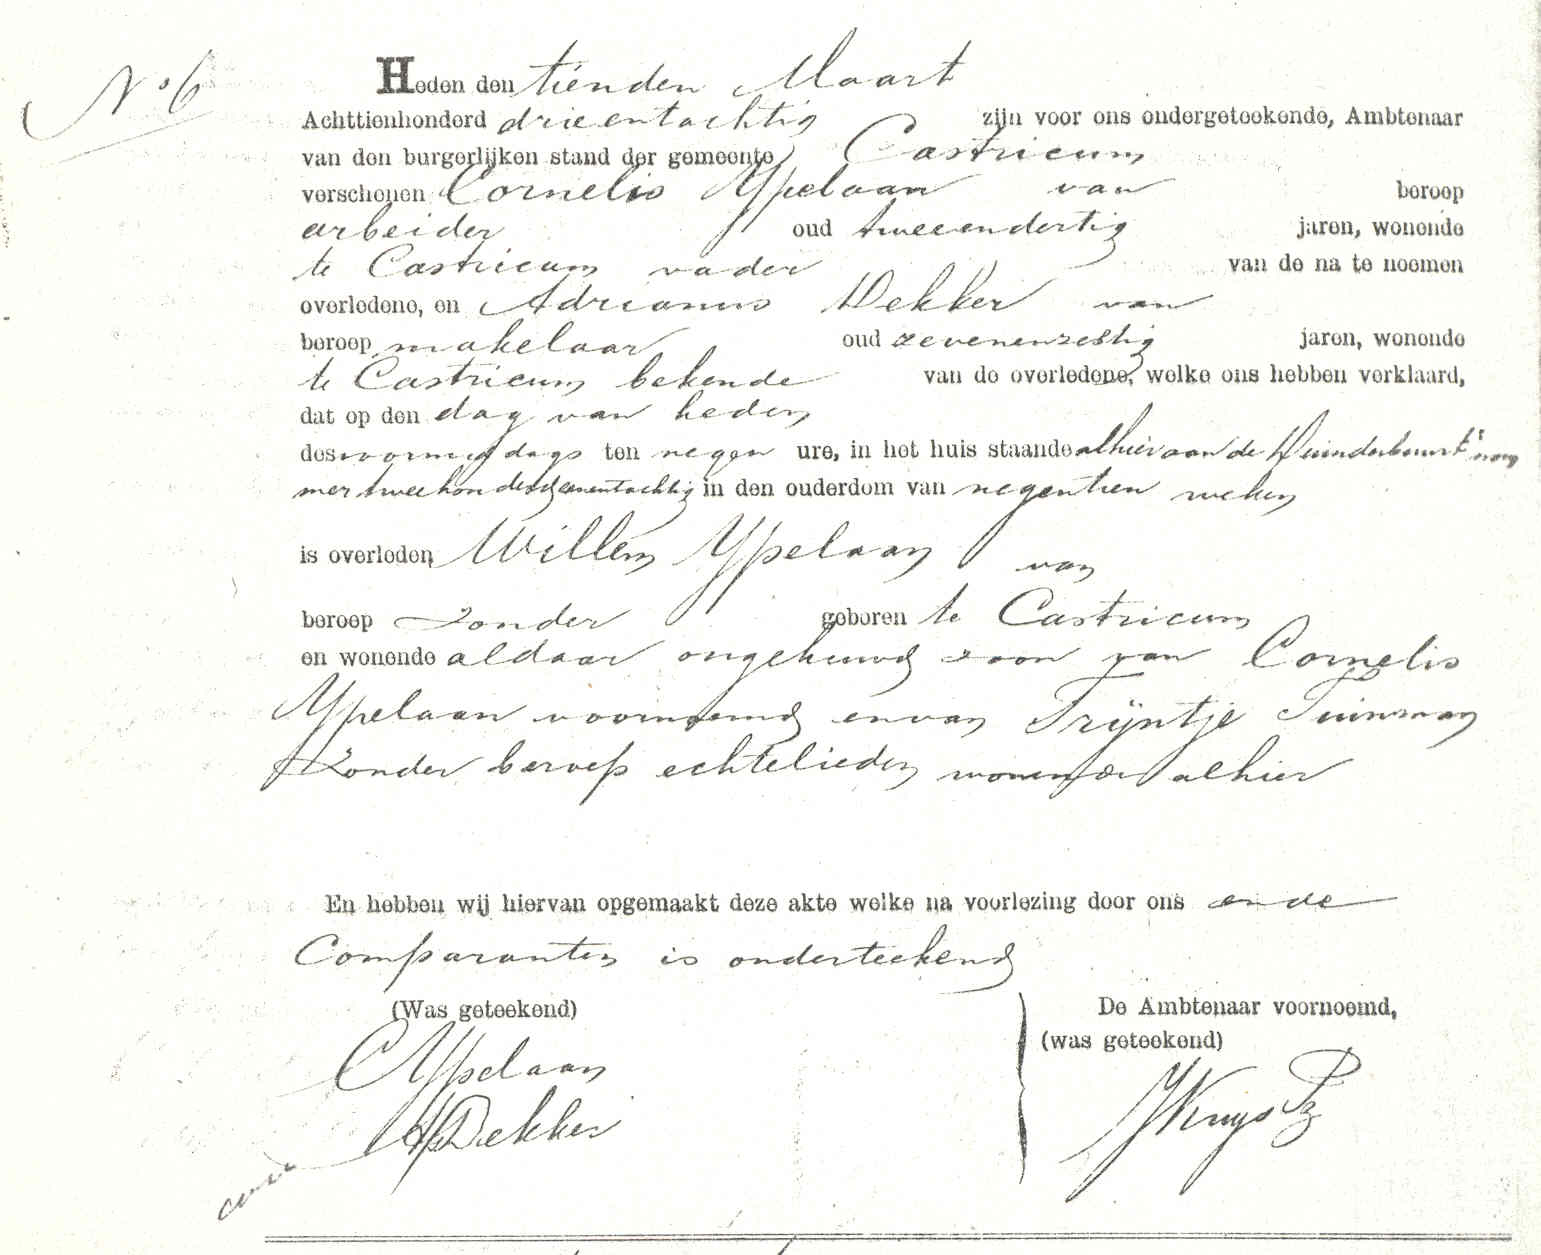 No 6
Heden den tienden Maart
Achttienhonderd drieentachtig zijn voor ons ondergeteekende, Ambtenaar
van den burgerlijken stand der gemeente Castricum
verschenen Cornelis Ypelaan van beroep
arbeider oud tweeendertig jaren, wonende
te Castricum vader van de na te noemen
overledene, en Adrianus Dekker van
beroep makelaar oud zevenenzestig jaren, wonende
te Castricum bekende van de overledene, welke ons hebben verklaard,
dat op den dag van heden
des voormiddags ten negen ure, in het huis staande alhier aan de nom
mer tweehonderd eenentachtig in den ouderdom van negentien weken
is overleden Willem Ypelaan van
beroep zonder geboren te Castricum
en wonende aldaar ongehuwd zoon van Cornelis
Ypelaan voornoemd en van Trijntje Tuinman
zonder beroep echtelieden wonende alhier
En hebben wij hiervan opgemaakt deze akte welke na voorlezing door ons en de
Comparanten is onderteekend
(Was geteekend) De Ambtenaar voornoemd,
(was geteekend)
C Ypelaan
A Dekker